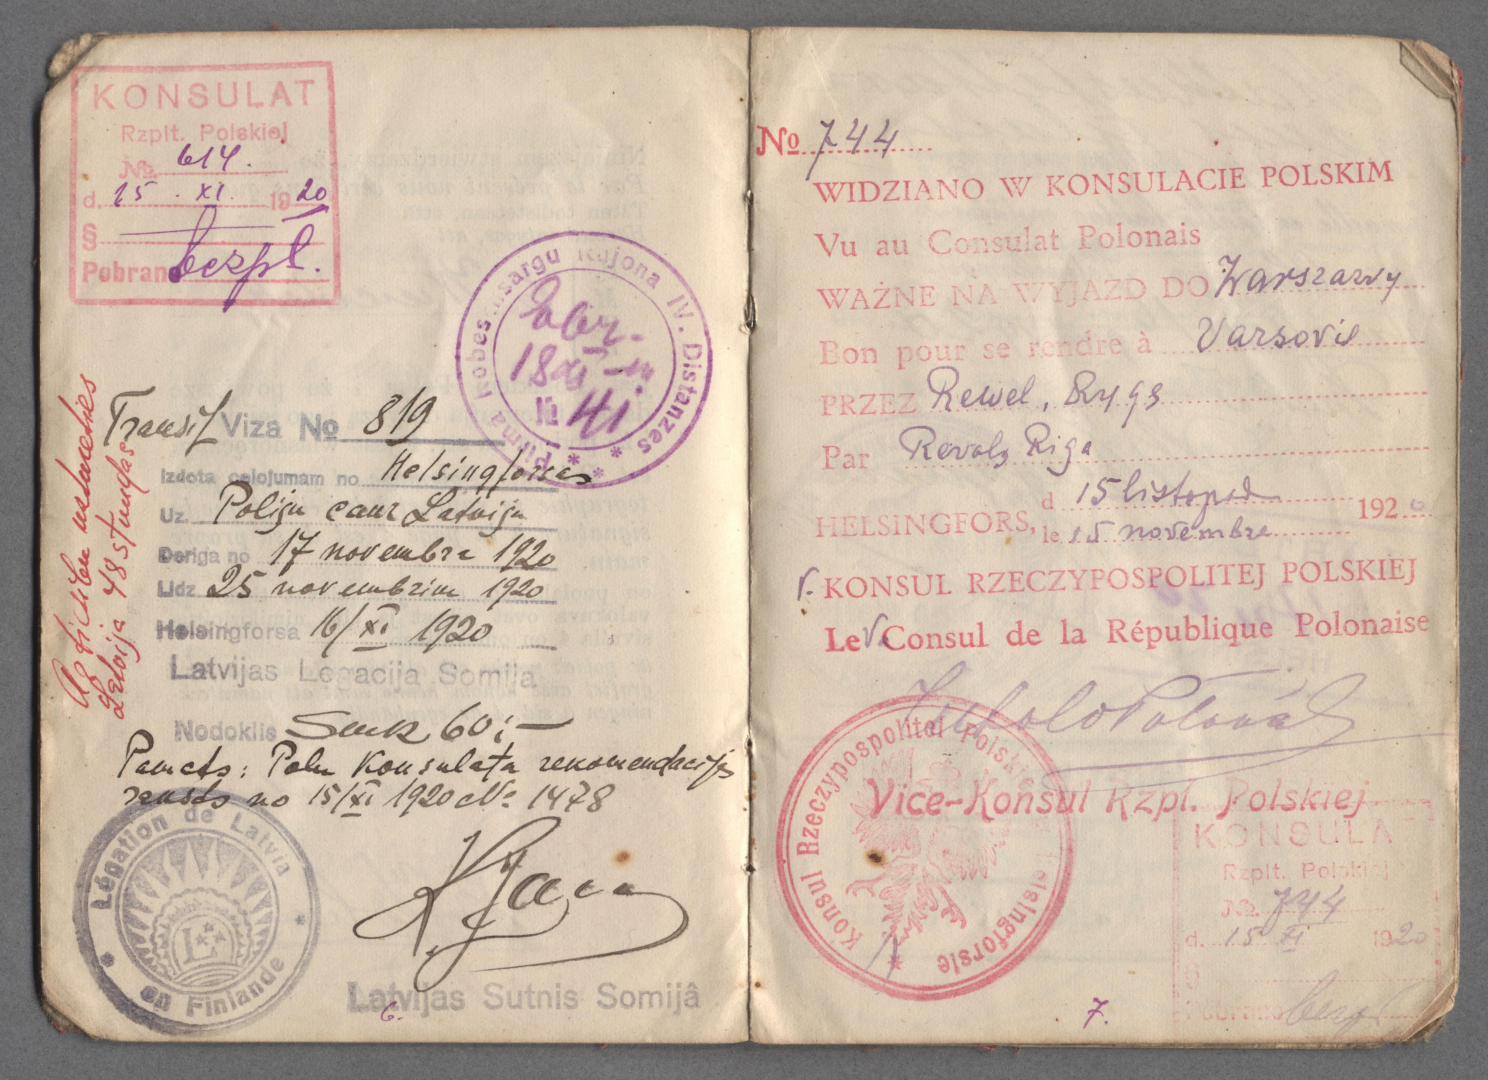 KONSULAT
Rzplt. Polskiej
№ 614.
d. 15. XI. 1920
§
Pobrano bezpl.
Robes...sargu Rajona IV. Distanzes * * * Pirma
18 XI
№ 41.
Transit Viza № 819
Izdota ceļojumam no Helsingforsas
Uz Poliju caur Latviju
Deriga no 17 novembra 1920
Lidz 25 novembrim 1920
Helsingforsa 16/XI 1920
Latvijas Legacija Somija
Nodoklis Smk 60:—
Pamats: Polu Konsulata rekomendacijas
raksts no 15/XI 1920 № 1478
Latvija 48 stundas
Légation de Latvia
en Finlande
L
Latvijas Sutnis Somijâ
6.
№ 744
WIDZIANO W KONSULACIE POLSKIM
Vu au Consulat Polonais
WAŻNE NA WYJAZD DO Warszawy
Bon pour se rendre à Varsovie
PRZEZ Rewel, Rygę
Par Reval, Riga
d 15 listopad
HELSINGFORS, 1920
le 15 novembre
V. KONSUL RZECZYPOSPOLITEJ POLSKIEJ
Le V. Consul de la République Polonaise
Vice-Konsul Rzpl. Polskiej
Konsul Rzeczypospolitej Polskiej Helsingforsie *
KONSULA
Rzplt. Polskiej
№ 744
d. 15 XI 1920
§
Pobrano bezpl
7.